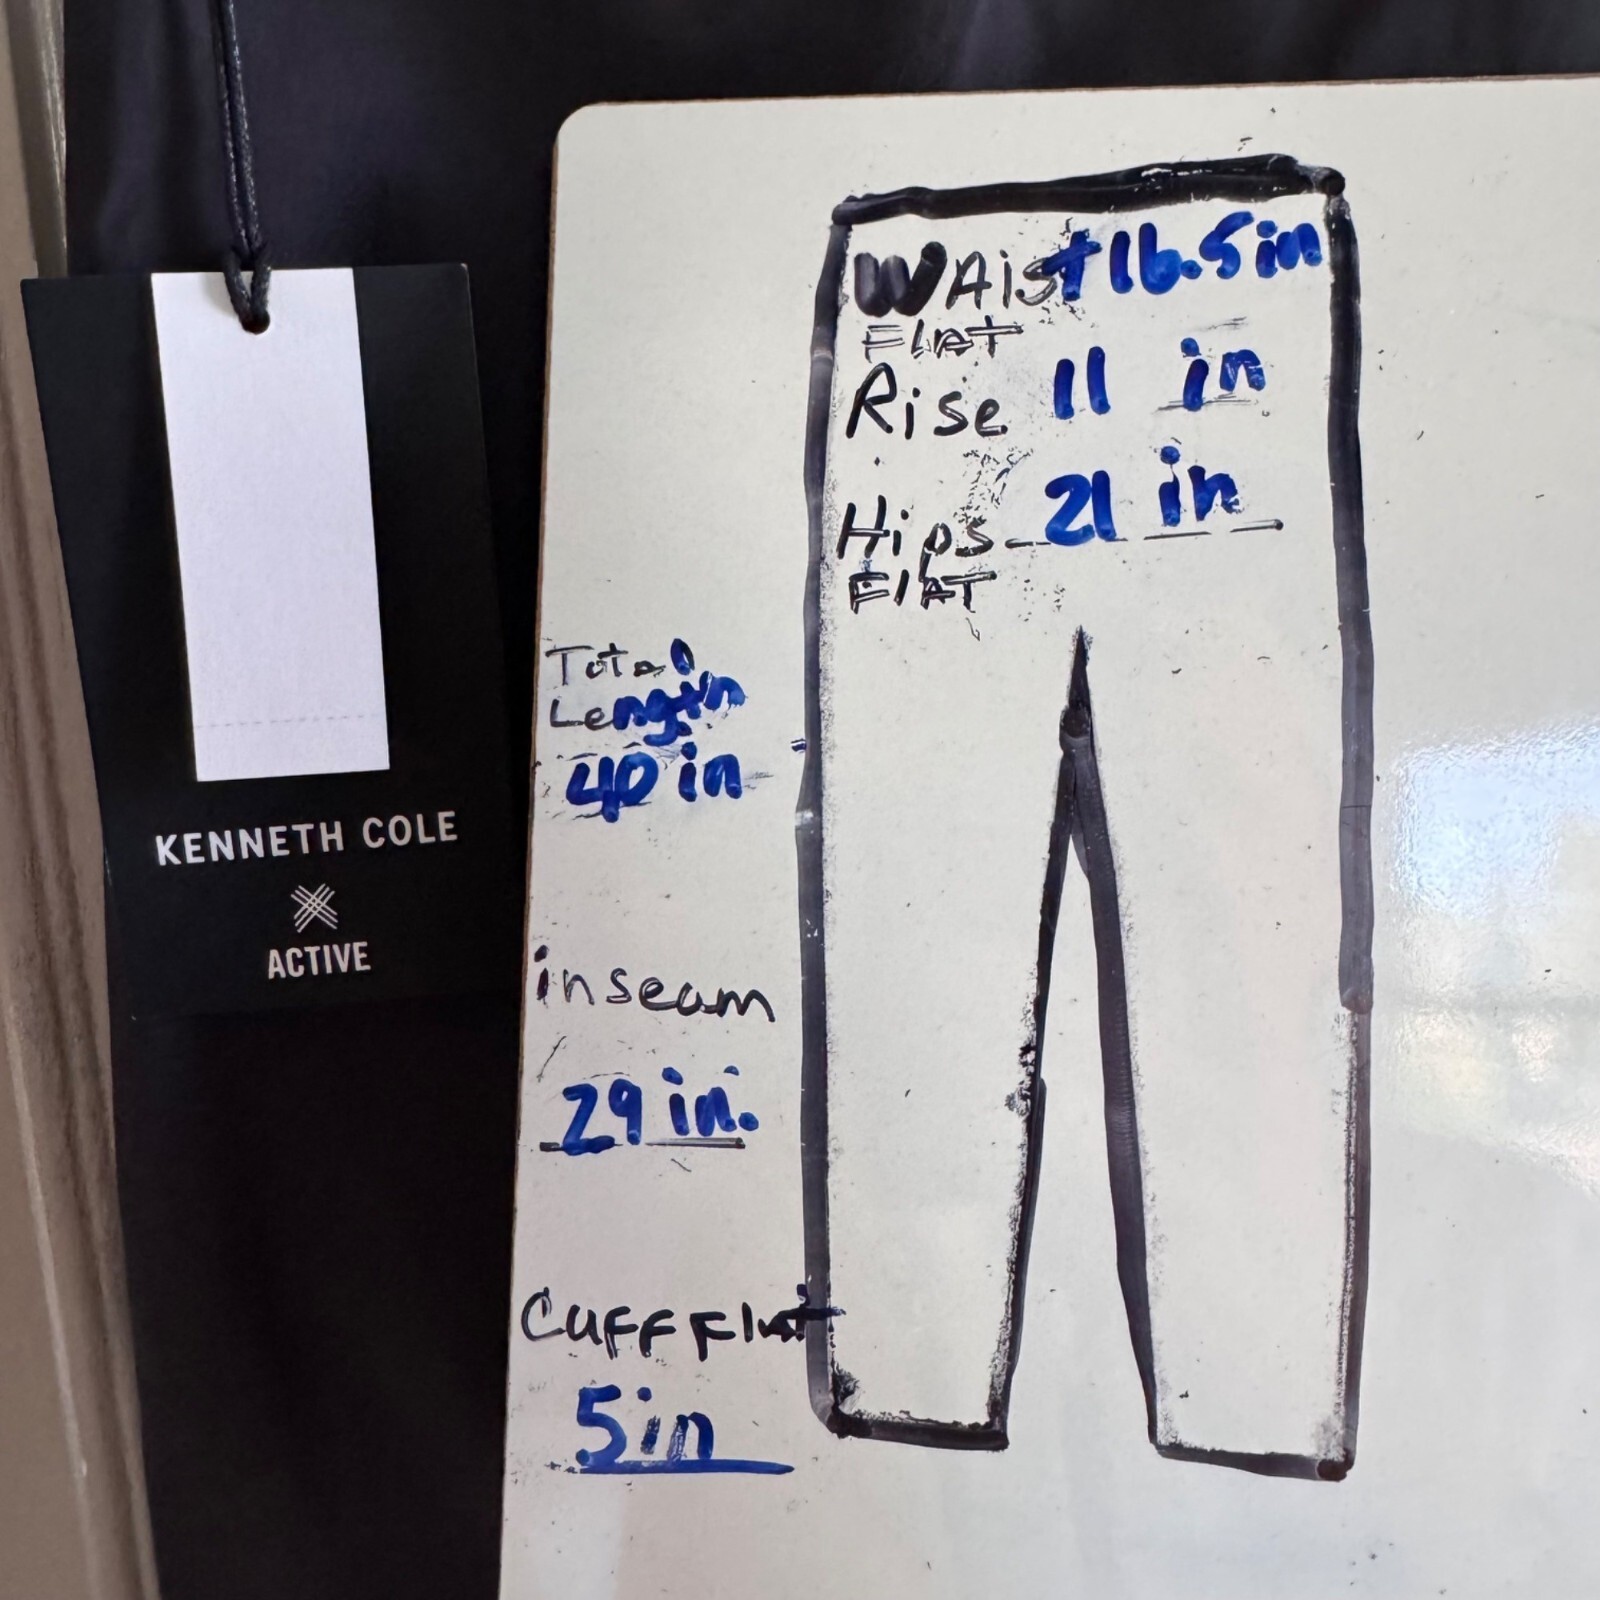 KENNETH COLE
ACTIVE
WAist 16.5 in
FLAT
Rise 11 in
Hips 21 in
FLAT
Total
Length
40 in
inseam
29 in.
Cuff Flat
5 in